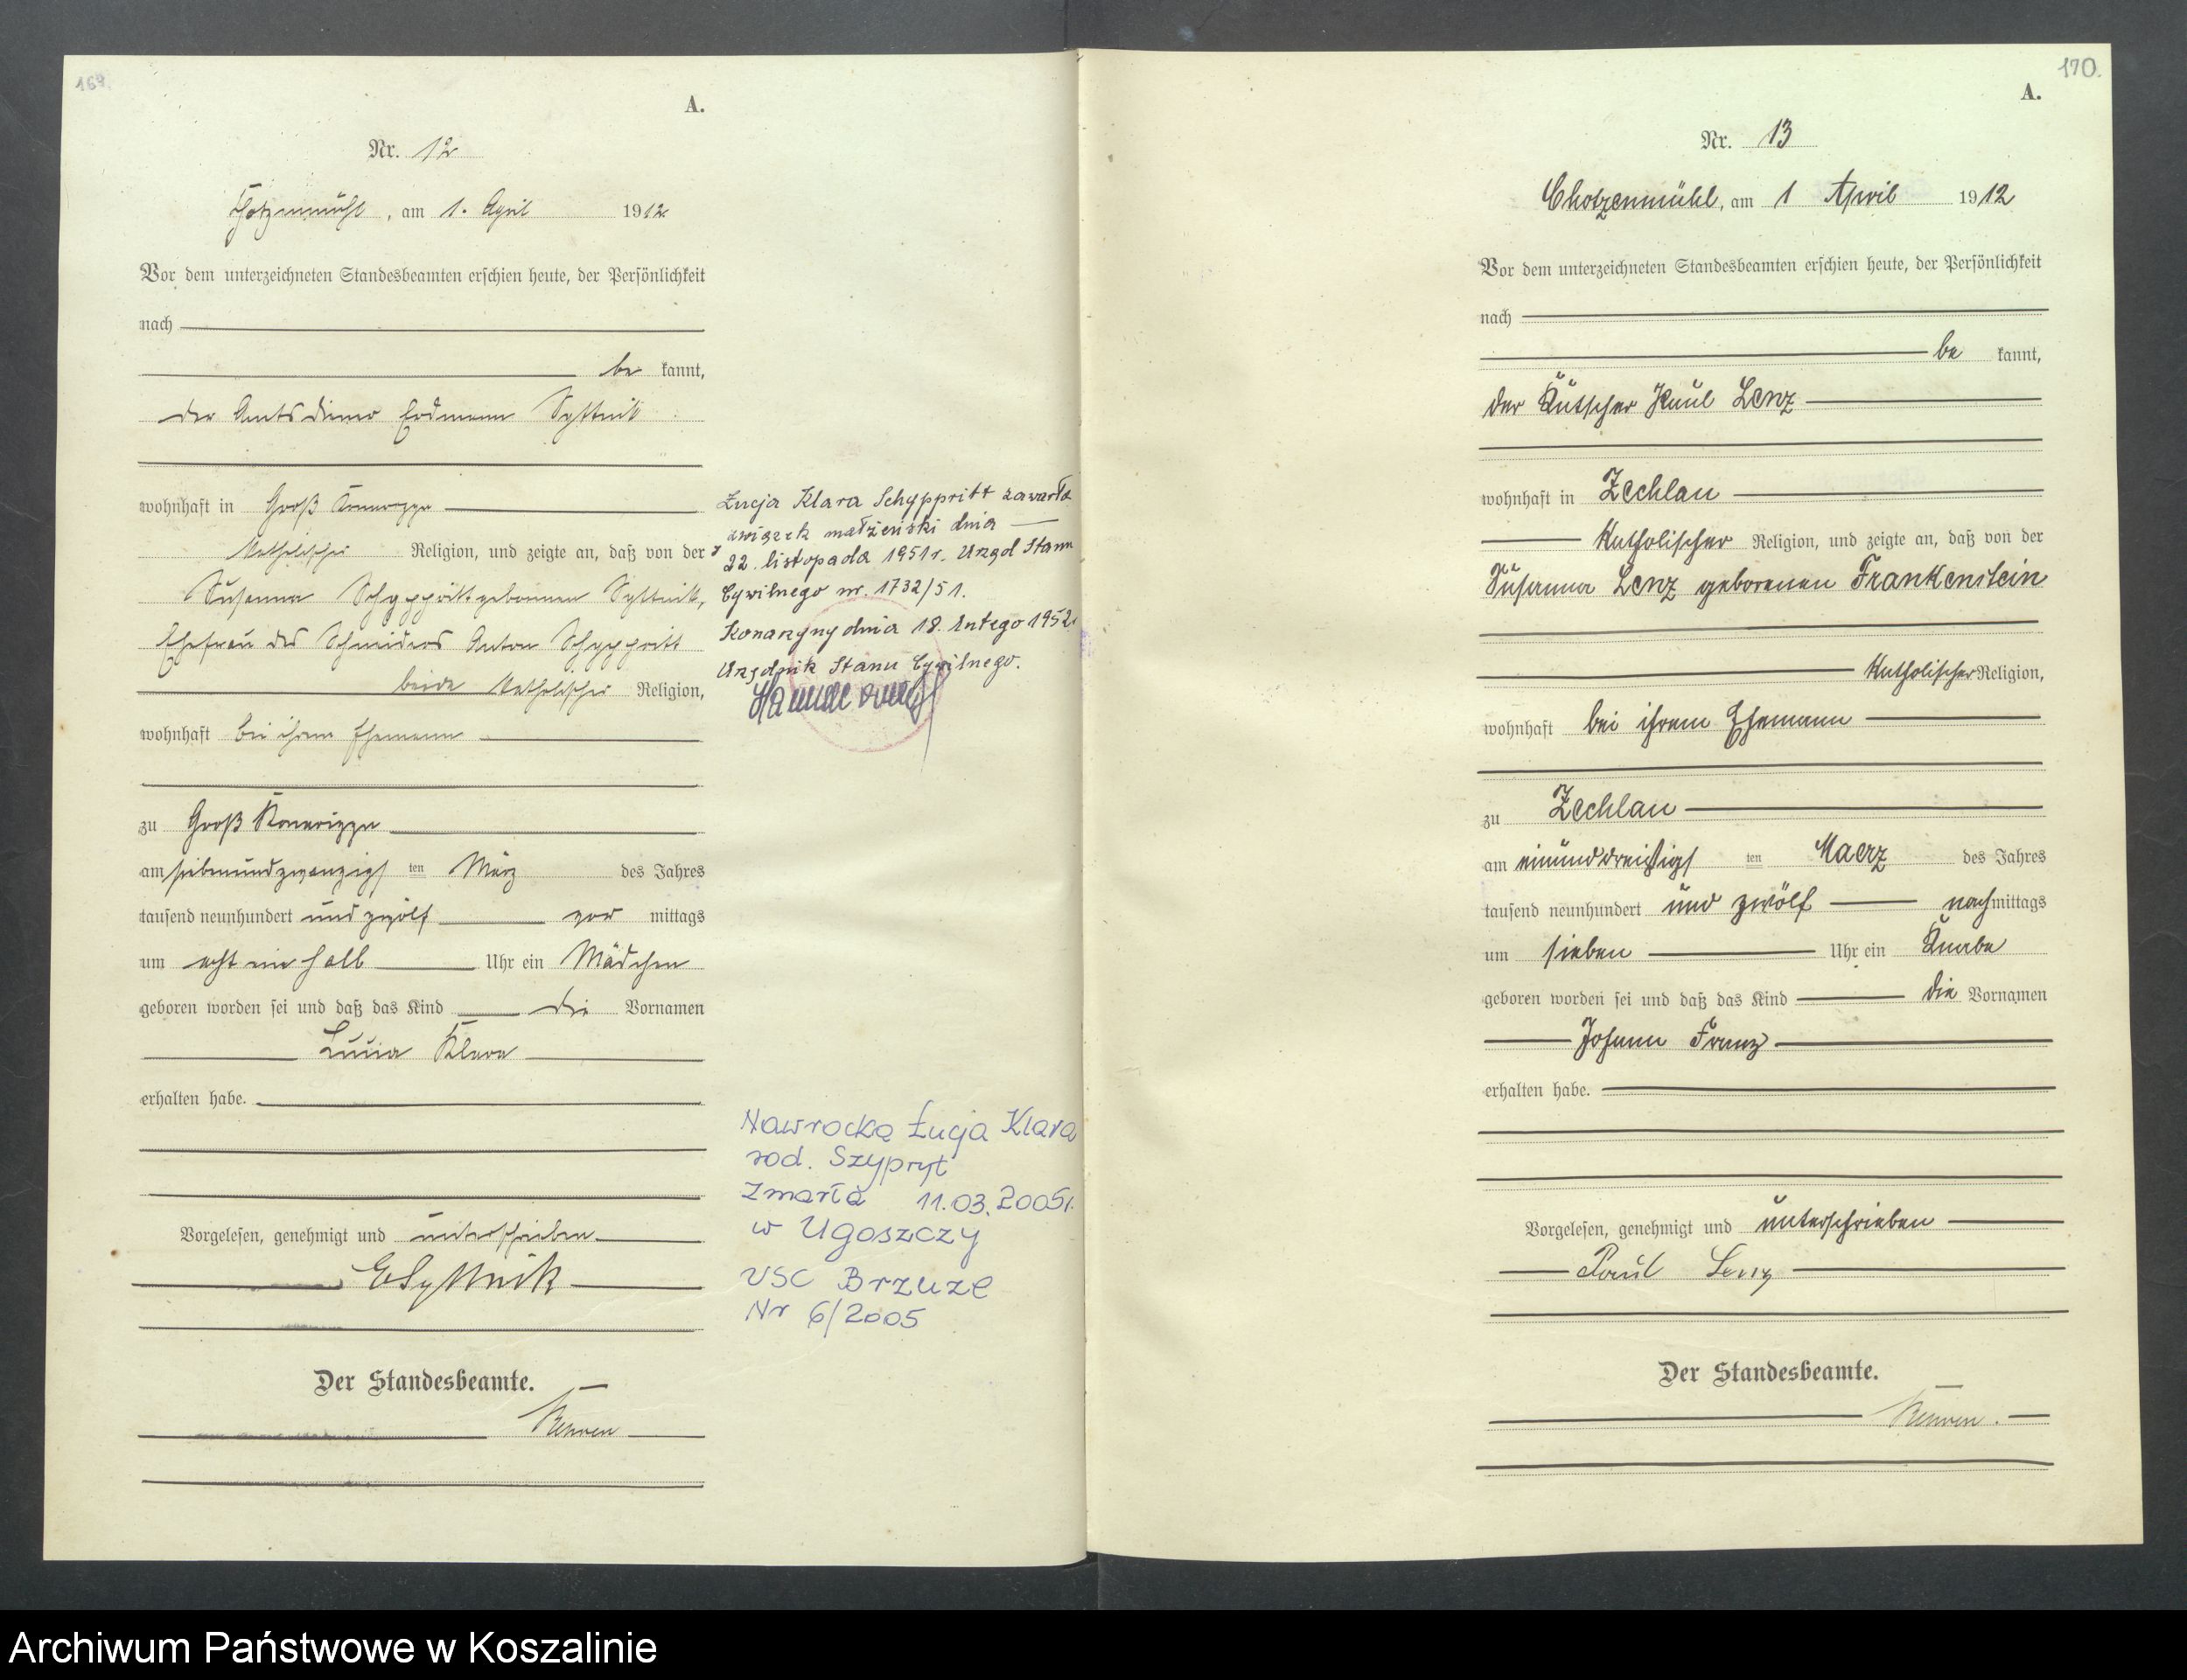 169.
A.
Nr. 12
Chotzenmühl, am 1. April 1912
Vor dem unterzeichneten Standesbeamten erschien heute, der Persönlichkeit
nach
be kannt,
der Amtsdiener Erdmann Syttnik
wohnhaft in Groß Konarzyn
katholischer Religion, und zeigte an, daß von der
Susanna Schyppritt geborenen Syttnik,
Ehefrau des Schneiders Anton Schyppritt
beide katholischer Religion,
wohnhaft bei ihrem Ehemann
zu Groß Konarzyn
am siebenundzwanzigsten März des Jahres
tausend neunhundert und zwölf vor mittags
um acht ein halb Uhr ein Mädchen
geboren worden sei und daß das Kind die Vornamen
Lucia Klara
erhalten habe.
Vorgelesen, genehmigt und unterschrieben
E Syttnik
Der Standesbeamte.
Łucja Klara Schyppritt zawarła
związek małżeński dnia
22. listopada 1951 r. Urząd Stanu
Cywilnego nr. 1732/51.
Konarzyny dnia 18. lutego 1952.
Urzędnik Stanu Cywilnego.
Nawrocka Łucja Klara
rod. Szypryt
zmarła 11.03.2005r.
w Ugoszczy
USC Brzuze
Nr 6/2005
170.
A.
Nr. 13
Chotzenmühl, am 1 April 1912
Vor dem unterzeichneten Standesbeamten erschien heute, der Persönlichkeit
nach
be kannt,
der Kutscher Paul Lenz
wohnhaft in Zechlau
katholischer Religion, und zeigte an, daß von der
Susanna Lenz geborenen Frankenstein
katholischer Religion,
wohnhaft bei ihrem Ehemann
zu Zechlau
am einunddreißigsten Maerz des Jahres
tausend neunhundert und zwölf nachmittags
um sieben Uhr ein Knabe
geboren worden sei und daß das Kind die Vornamen
Johann Franz
erhalten habe.
Vorgelesen, genehmigt und unterschrieben
Paul Lenz
Der Standesbeamte.
Archiwum Państwowe w Koszalinie